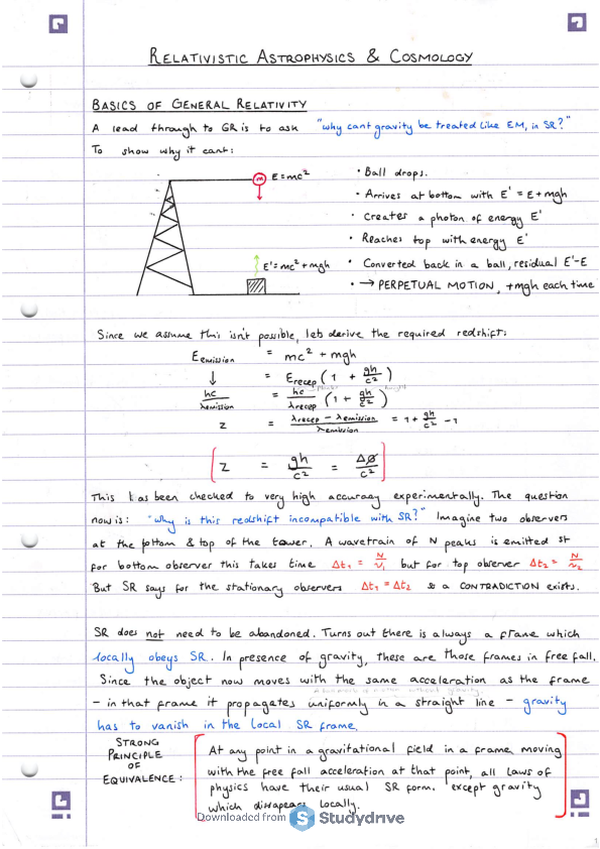 RELATIVISTIC ASTROPHYSICS & COSMOLOGY
BASICS OF GENERAL RELATIVITY
A lead through to GR is to ask "why cant gravity be treated like EM, in SR?"
To show why it cant:
m E=mc²
• Ball drops.
• Arrives at bottom with E' = E + mgh
• Creates a photon of energy E'
• Reaches top with energy E'
E'=mc²+mgh
• Converted back in a ball, residual E'-E
• → PERPETUAL MOTION, +mgh each time
Since we assume this isn't possible, lets derive the required redshift:
E emission = mc² + mgh
↓ = E recep (1 + gh/c²)
hc/λemission = hc/λrecep (1 + gh/c²)
z = λrecep - λemission / λemission = 1 + gh/c² - 1
[z = gh/c² = Δø/c²]
This has been checked to very high accuracy experimentally. The question
now is: "why is this redshift incompatible with SR?" Imagine two observers
at the bottom & top of the tower. A wavetrain of N peaks is emitted st
for bottom observer this takes time Δt₁ = N/ν₁ but for top observer Δt₂ = N/ν₂
But SR says for the stationary observers Δt₁ = Δt₂ so a CONTRADICTION exists.
SR does not need to be abandoned. Turns out there is always a frame which
locally obeys SR. In presence of gravity, these are those frames in free fall.
Since the object now moves with the same acceleration as the frame
- in that frame it propagates uniformly in a straight line - gravity
has to vanish in the local SR frame.
STRONG PRINCIPLE OF EQUIVALENCE:
At any point in a gravitational field in a frame moving
with the free fall acceleration at that point, all laws of
physics have their usual SR form. except gravity
which disappears locally.
Downloaded from S Studydrive
1